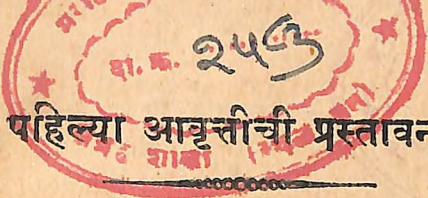 दा. क्र. २५८३
पहिल्या आवृत्तीची प्रस्तावन
शाखा